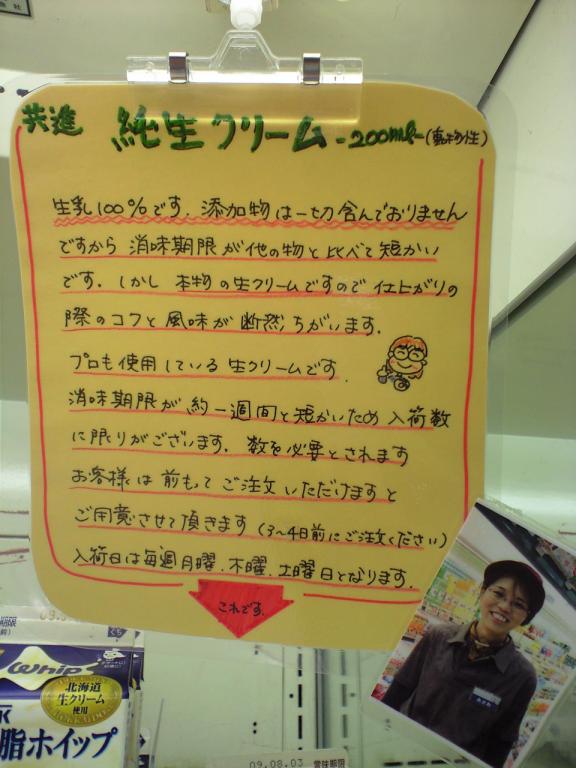 共進 純生クリーム -200ml- (動物性)
生乳100%です. 添加物は一切含んでおりません
ですから 消味期限が他の物と比べて短かい
です. しかし 本物の生クリームですので 仕上がりの
際のコクと風味が断然ちがいます.
プロも使用している生クリームです.
消味期限が約一週間と短かいため 入荷数
に限りがございます. 数を必要とされます
お客様は前もってご注文いただけますと
ご用意させて頂きます (3〜4日前にご注文ください)
入荷日は毎週月曜. 木曜. 土曜日となります.
これです.
Whip
北海道
生クリーム
使用
脂ホイップ
09.08.03 賞味期限